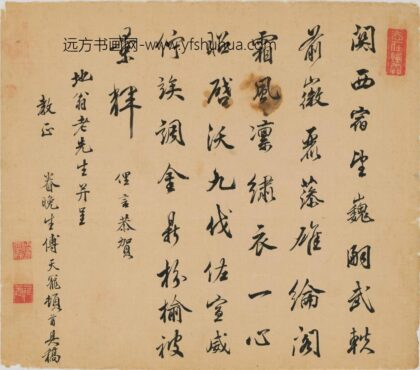 远方书画网-www.yfshuhua.com
關西宿望巍嗣武軼
前徽飛藻雄綸閣
霜風凛繡衣一心
昭啓沃九伐佐宣威
佇竢調金鼎枌榆被
景輝
俚言恭賀
地翁老先生并呈
教正
眷晚生傅天寵頓首具稿